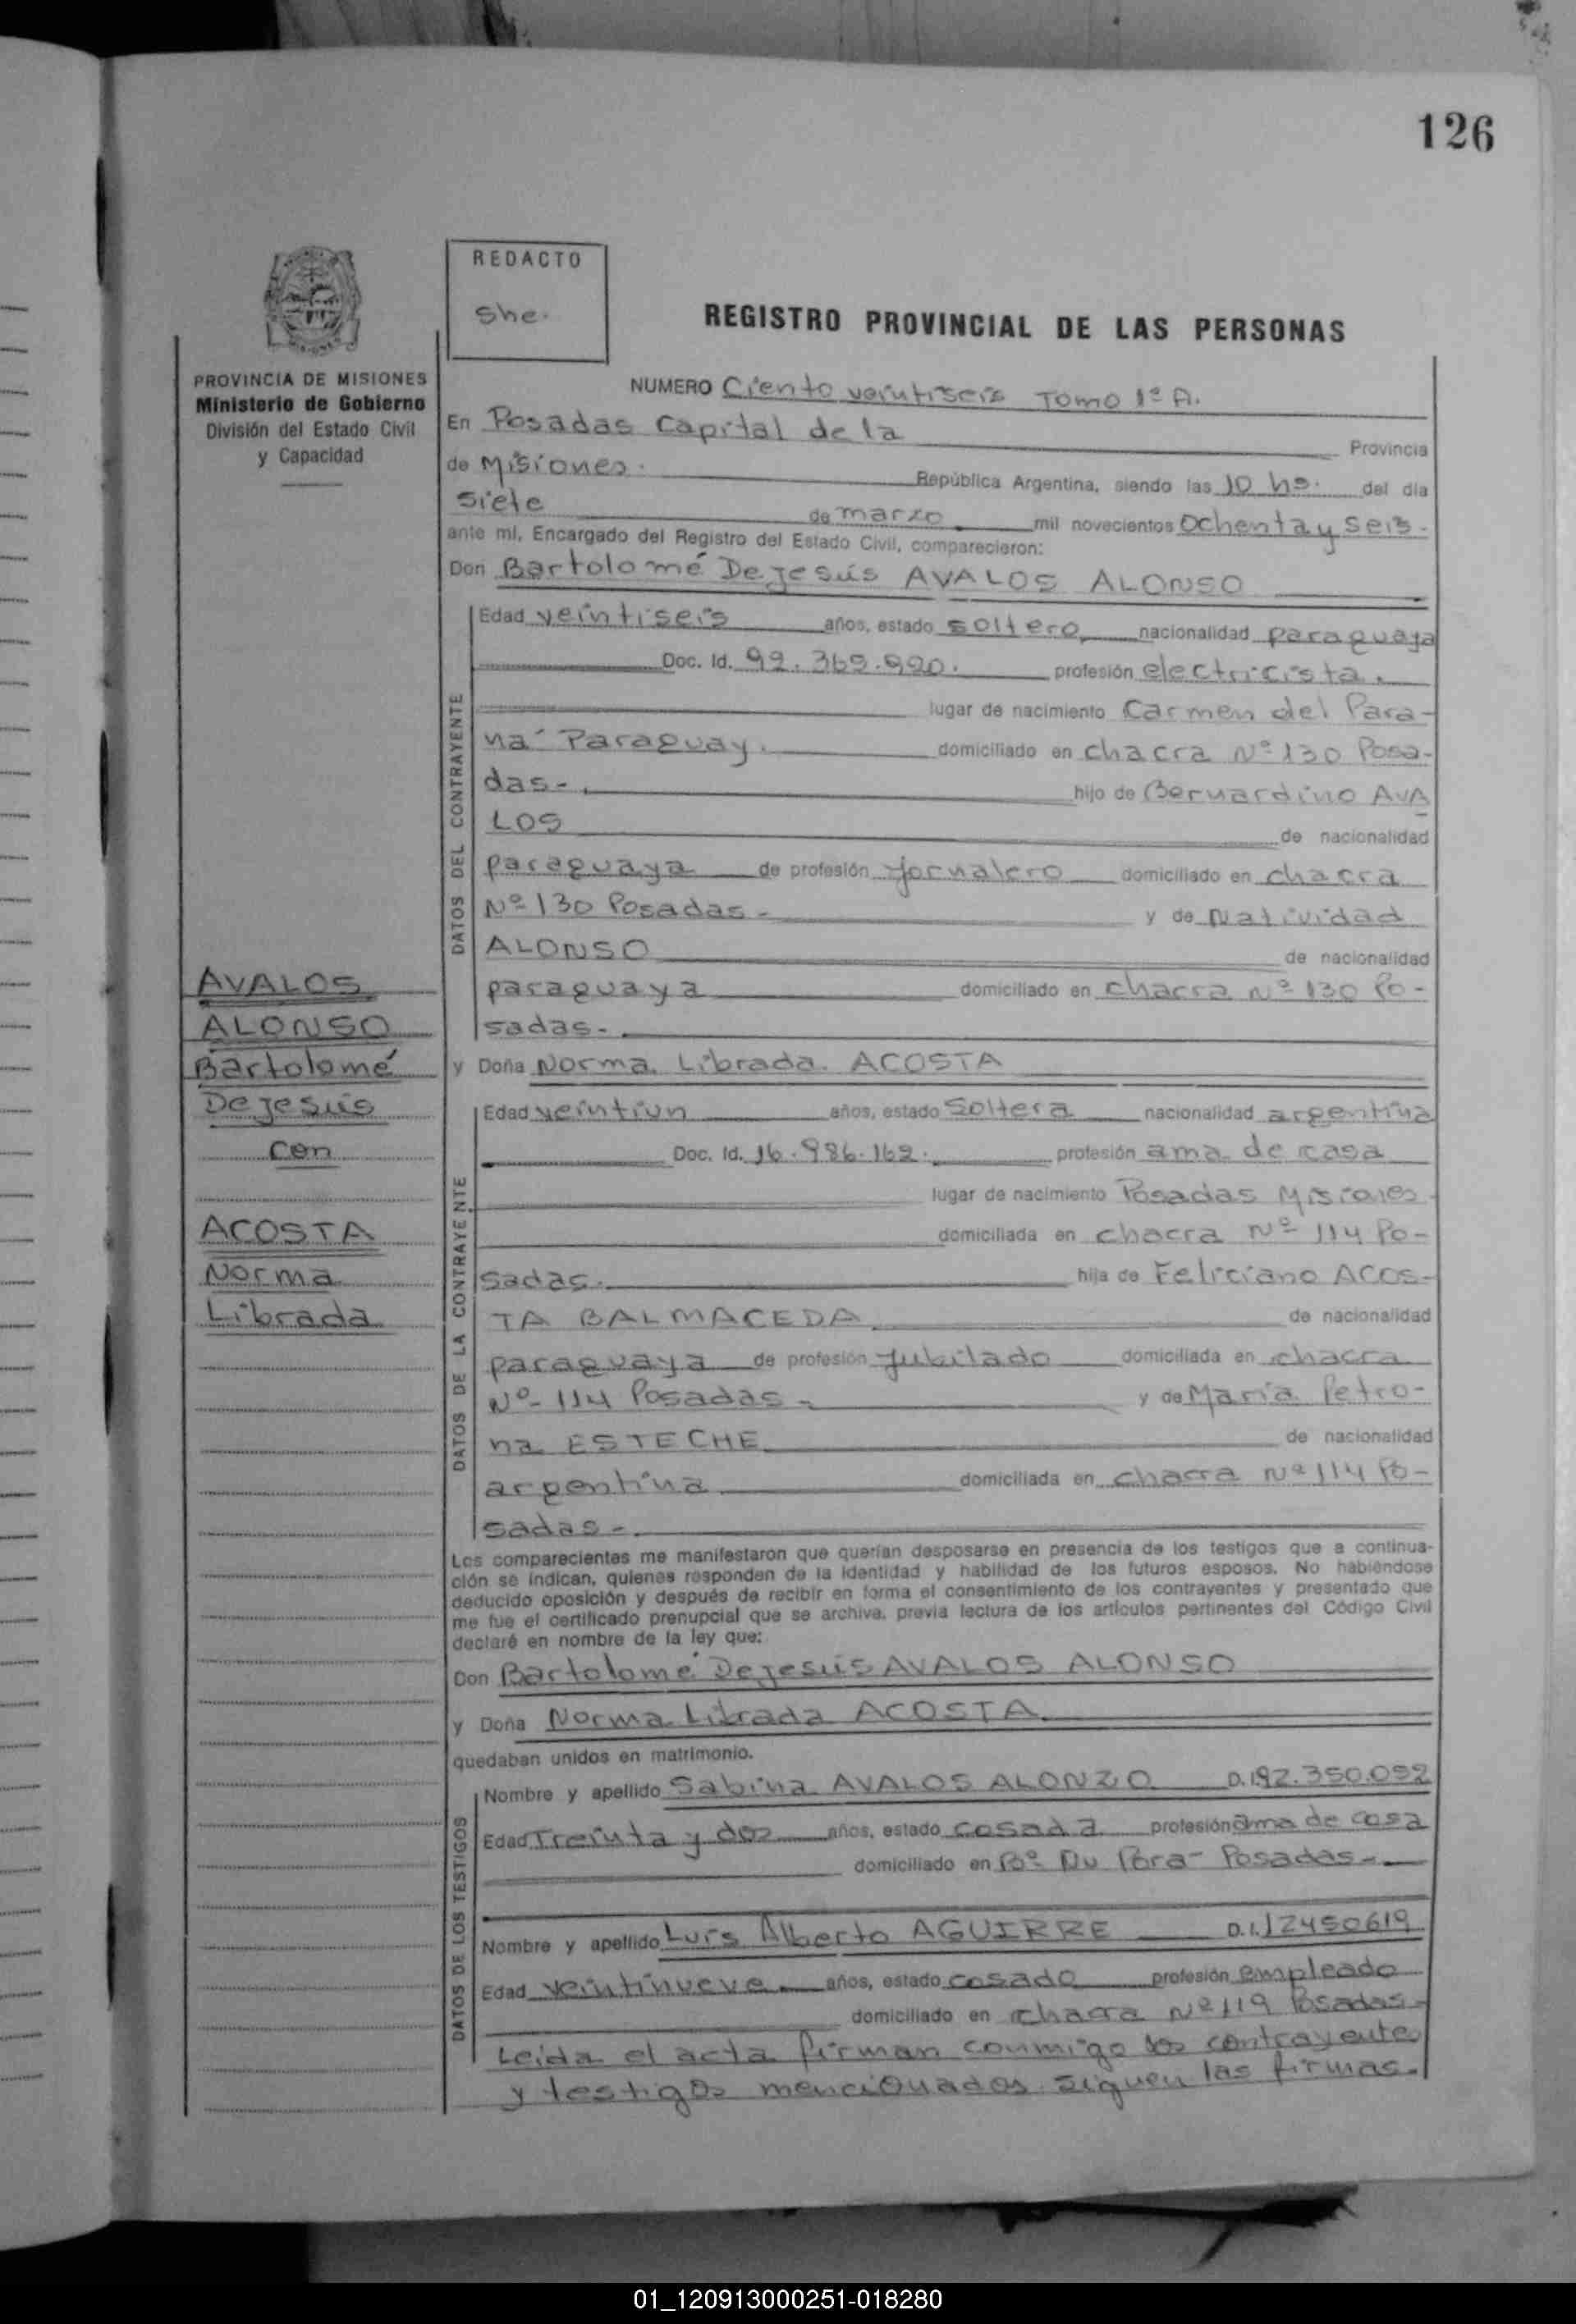 126
REDACTO
she.
REGISTRO PROVINCIAL DE LAS PERSONAS
PROVINCIA DE MISIONES
Ministerio de Gobierno
División del Estado Civil
y Capacidad
NUMERO Ciento veintiseis Tomo 1º A.
En Posadas Capital de la Provincia
de Misiones. República Argentina, siendo las 10 hs. del día
siete de marzo mil novecientos Ochenta y seis.
ante mí, Encargado del Registro del Estado Civil, comparecieron:
Don Bartolomé De Jesús AVALOS ALONSO
DATOS DEL CONTRAYENTE
Edad veintiseis años, estado soltero nacionalidad paraguaya
Doc. Id. 92.369.920. profesión electricista.
lugar de nacimiento Carmen del Para-
ná Paraguay. domiciliado en chacra Nº 130 Posa-
das-. hijo de Bernardino AVA
LOS de nacionalidad
paraguaya de profesión jornalero domiciliado en chacra
Nº 130 Posadas- y de Natividad
ALONSO de nacionalidad
paraguaya domiciliado en chacra Nº 130 Po-
sadas-.
y Doña Norma Librada ACOSTA
DATOS DE LA CONTRAYENTE
Edad veintiun años, estado Soltera nacionalidad argentina
Doc. Id. 16.986.162. profesión ama de casa
lugar de nacimiento Posadas Misiones
domiciliada en chacra Nº 114 Po-
sadas. hija de Feliciano ACOS-
TA BALMACEDA de nacionalidad
paraguaya de profesión jubilado domiciliada en chacra
Nº 114 Posadas- y de María Petro-
na ESTECHE de nacionalidad
argentina domiciliada en chacra Nº 114 Po-
sadas-.
Los comparecientes me manifestaron que querían desposarse en presencia de los testigos que a continua-
ción se indican, quienes responden de la identidad y habilidad de los futuros esposos. No habiéndose
deducido oposición y después de recibir en forma el consentimiento de los contrayentes y presentado que
me fue el certificado prenupcial que se archiva, previa lectura de los artículos pertinentes del Código Civil
declaré en nombre de la ley que:
Don Bartolomé De Jesús AVALOS ALONSO
y Doña Norma Librada ACOSTA
quedaban unidos en matrimonio.
DATOS DE LOS TESTIGOS
Nombre y apellido Sabina AVALOS ALONZO D.I.92.350.052
Edad Treinta y dos años, estado casada profesión ama de casa
domiciliado en Bº Ñu Pora- Posadas-.
Nombre y apellido Luis Alberto AGUIRRE D.I.12450619
Edad veintinueve años, estado casado profesión empleado
domiciliado en chacra Nº 119 Posadas-
Leída el acta firman conmigo los contrayentes
y testigos mencionados. siguen las firmas.
AVALOS
ALONSO
Bartolomé
De Jesús
con
ACOSTA
Norma
Librada
01_120913000251-018280